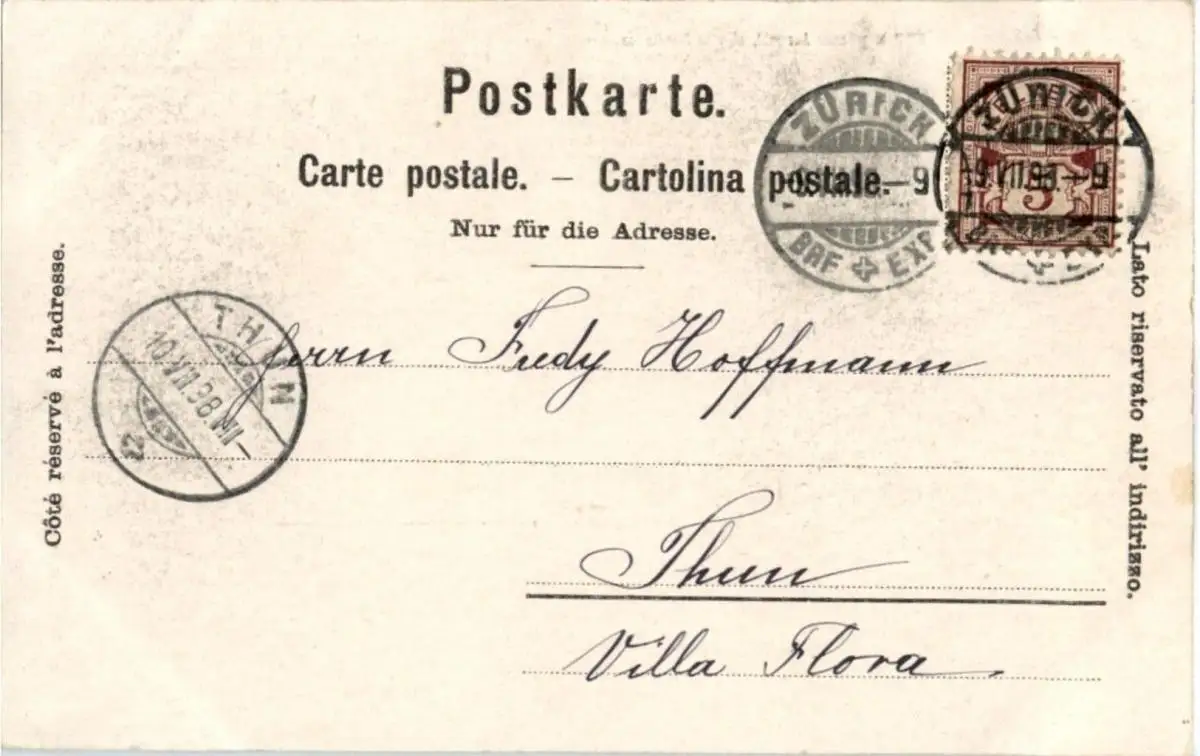 Postkarte.
Carte postale. – Cartolina postale.
Nur für die Adresse.
ZÜRICH
–9
BRF EXP
ZÜRICH
9.VII.98.–9
5
Côté réservé à l'adresse.
Lato riservato all' indirizzo.
THUN
10.VII.98.VII–
Herrn Fredy Hoffmann
Thun
Villa Flora.